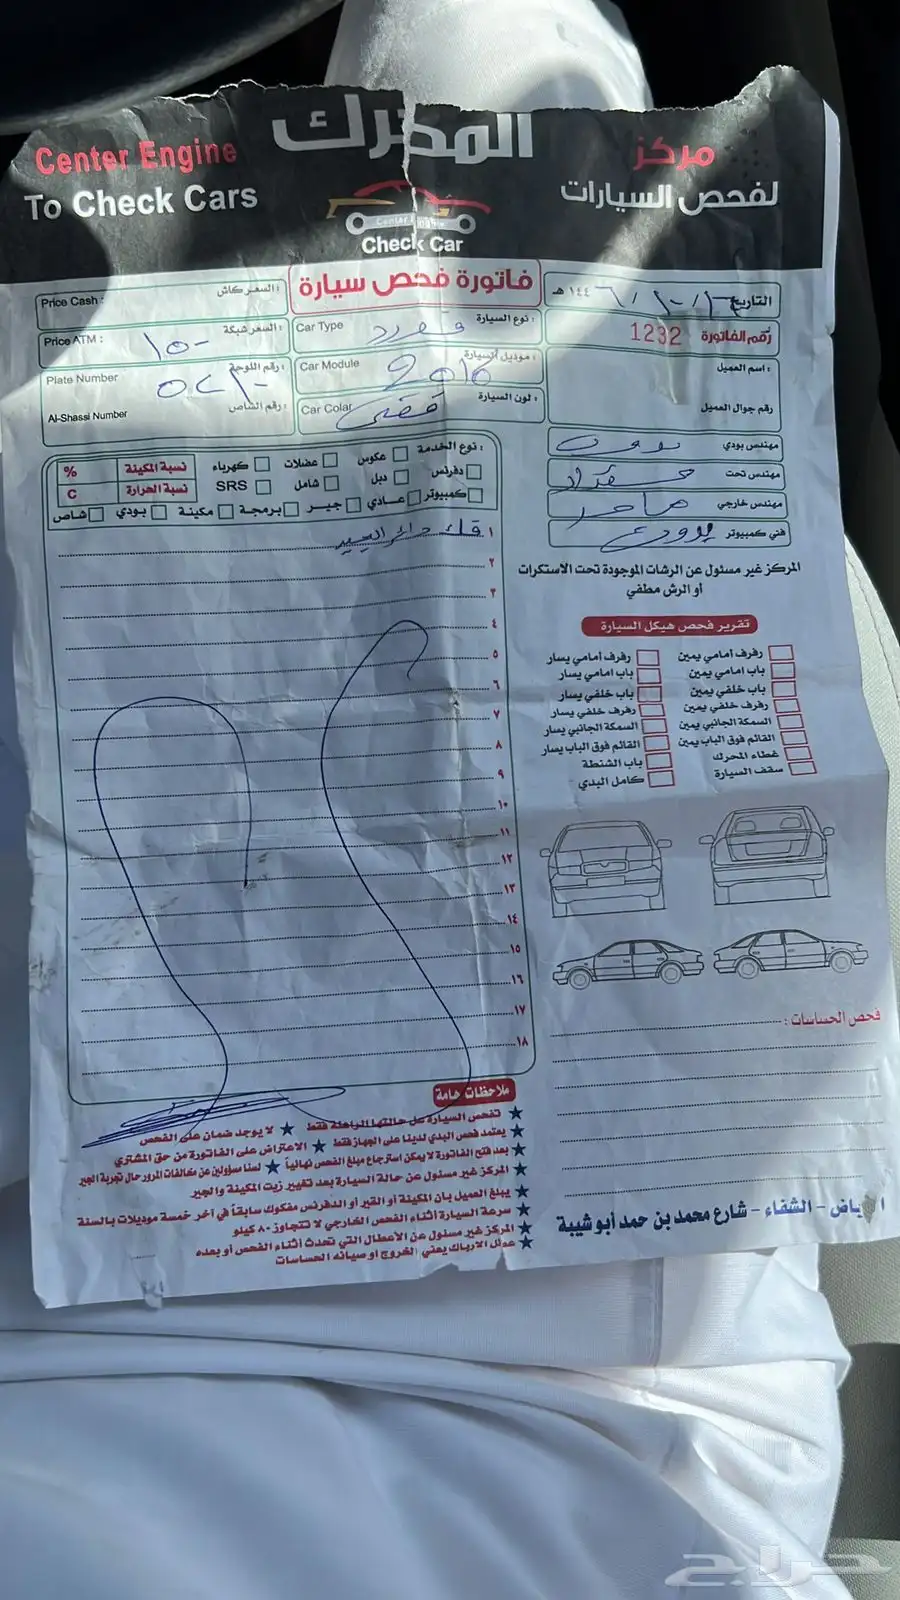 Center Engine
To Check Cars
المحرك
مركز
لفحص السيارات
Check Car
فاتورة فحص سيارة
Price Cash :
السعر كاش :
Price ATM :
١٥٠
السعر شبكة :
Plate Number
رقم اللوحة :
Al-Shassi Number
رقم الشاص :
Car Type
فورد
نوع السيارة :
Car Module
موديل السيارة :
Car Colar
فضي
لون السيارة :
التاريخ
١٤٤ هـ
رقم الفاتورة 1232
اسم العميل :
رقم جوال العميل
مهندس بودي
مهندس تحت
مهندس خارجي
فني كمبيوتر
نوع الخدمة :
عكوس
عضلات
كهرباء
دفرنس
دبل
شامل
SRS
كمبيوتر
عادي
جير
برمجة
مكينة
بودي
شاص
نسبة المكينة %
نسبة الحرارة C
١
٢
٣
٤
٥
٦
٧
٨
٩
١٠
١١
١٢
١٣
١٤
١٥
١٦
١٧
١٨
المركز غير مسئول عن الرشات الموجودة تحت الاستكرات
أو الرش مطفي
تقرير فحص هيكل السيارة
رفرف أمامي يمين
رفرف أمامي يسار
باب امامي يمين
باب امامي يسار
باب خلفي يمين
باب خلفي يسار
رفرف خلفي يمين
رفرف خلفي يسار
السمكة الجانبي يمين
السمكة الجانبي يسار
القائم فوق الباب يمين
القائم فوق الباب يسار
غطاء المحرك
باب الشنطة
سقف السيارة
كامل البدي
فحص الحساسات :
ملاحظات هامة
★ تفحص السيارة على حالتها الراهنة فقط ★ لا يوجد ضمان على الفحص
★ يعتمد فحص البدي لدينا على الجهاز فقط ★ الاعتراض على الفاتورة من حق المشتري
★ بعد فتح الفاتورة لا يمكن استرجاع مبلغ الفحص نهائياً ★ لسنا مسؤولين عن مخالفات المرور حال تجربة الجير
★ المركز غير مسئول عن حالة السيارة بعد تغيير زيت المكينة والجير
★ يبلغ العميل بان المكينة أو القير أو الدفرنس مفكوك سابقاً في آخر خمسة موديلات بالسنة
★ سرعة السيارة أثناء الفحص الخارجي لا تتجاوز ٨٠ كيلو
★ المركز غير مسئول عن الأعطال التي تحدث أثناء الفحص أو بعده
★ عدلل الارباك يعني الخروج او صيانه الحساسات
الرياض - الشفاء - شارع محمد بن حمد أبو شيبة
حراج